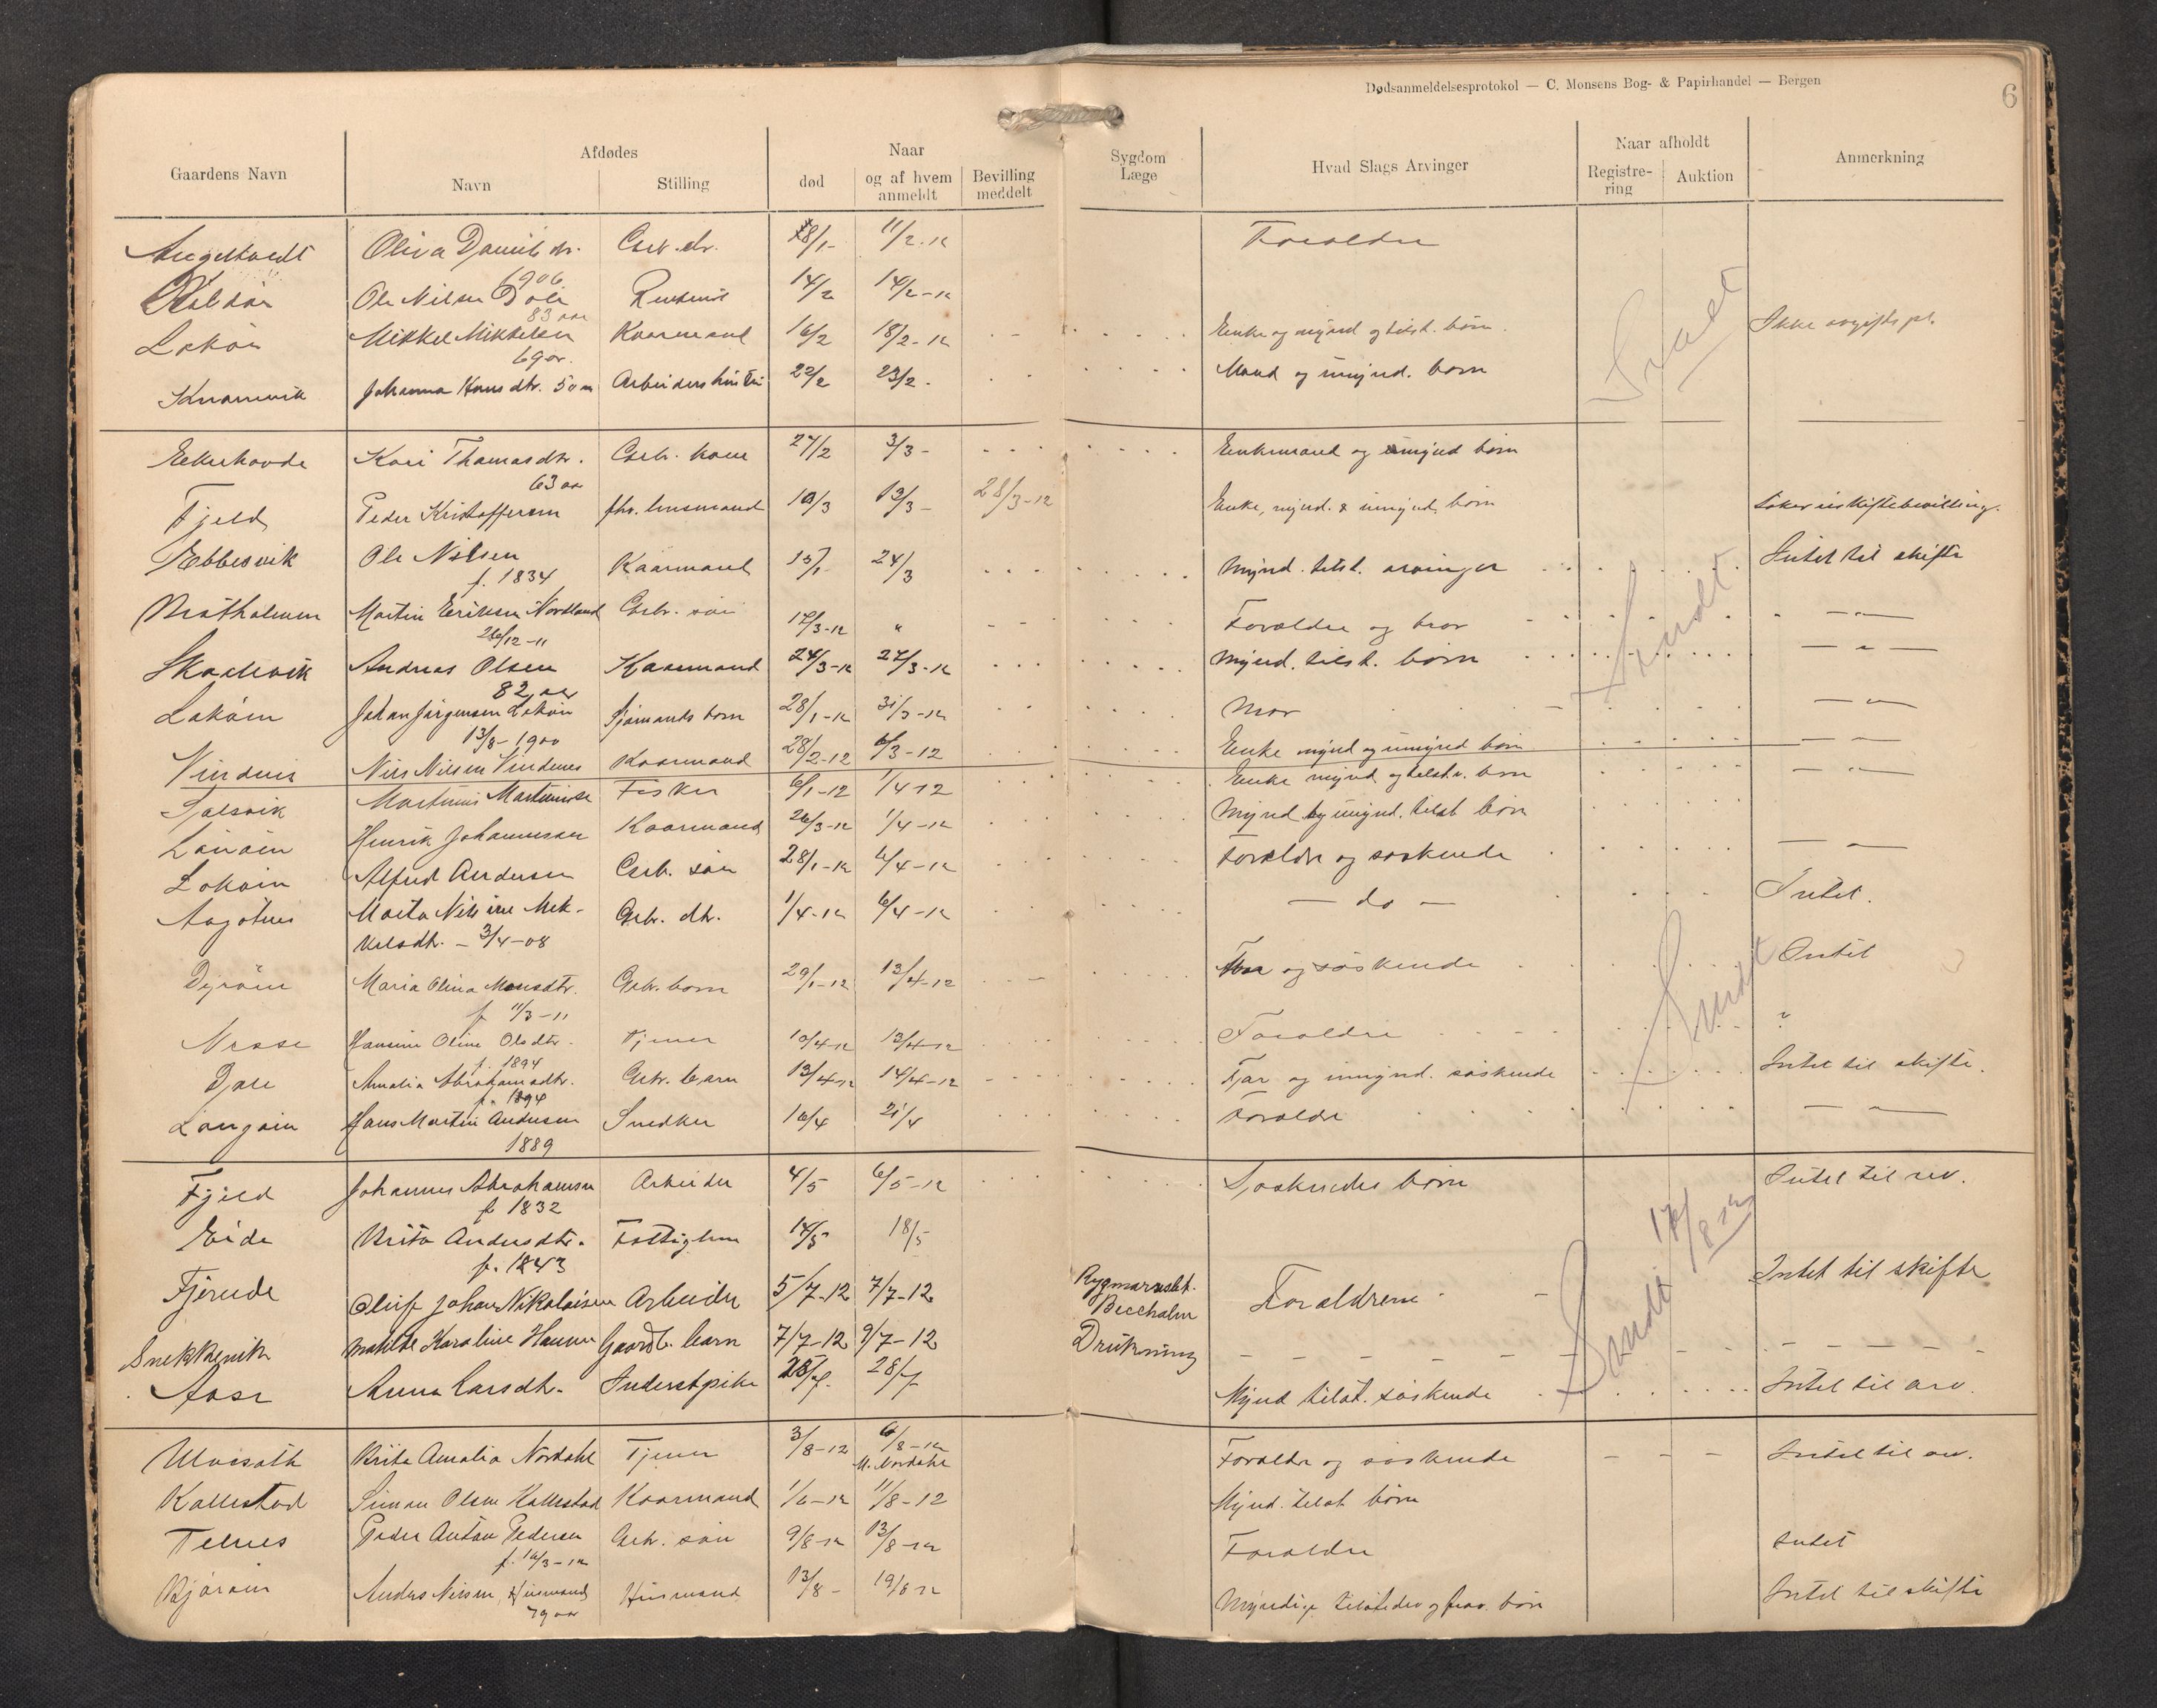 Dødsanmeldelsesprotokol — C. Monsens Bog- & Papirhandel — Bergen
6
Gaardens Navn
Afdødes
Navn
Stilling
Naar
død
og af hvem anmeldt
Bevilling meddelt
Sygdom Læge
Hvad Slags Arvinger
Naar afholdt
Registre-ring
Auktion
Anmerkning
Angeltveit Oliva Daniels dr. Gbr. dr. 28/1- 11/2-12 Forældre
1906
Ole Nilsen 14/2 14/2-12
83 aar
Lokøn Mikkel Mikkelsen Kaarmand 16/2 18/2-12 Enke og mynd og tilst. børn Ikke avgiftspl.
69 aar
Johanna Hansdtr. 50 aar Arbeiders hustru 22/2 23/2 - Mand og umynd. børn
Ekerhovde Kari Thomasdtr. Gbr. kone 27/2 3/3 - Enkemand og umynd børn
63 aar
Fjeld Peder Kristoffersen fhv. lensmand 10/3 13/3 - 28/3-12 Enke, mynd. & umynd. børn Søker uskiftebevilling.
Ebbesvik Ole Nilsen Kaarmand 15/1- 24/3 Mynd. tilst. arvinger Intet til skifte
f. 1834
Bratholmen Martin Eriksen Nordland Gbr. søn 17/3-12 " Forældre og bror — " —
26/12-11
Skaalevik Andreas Olsen Kaarmand 24/3-12 27/3-12 Mynd. tilst. børn — " —
82 aar
Lokøin Johan Jørgensen Lokøin Sjømands barn 28/1-12 31/3-12 Mor — " —
13/8-1900
Vindenes Nils Nilsen Vindenes Kaarmand 28/2-12 6/3-12 Enke mynd og umynd børn — " —
Martinus Martinussen Fisker 6/1-12 1/4-12 Enke mynd og tilst. børn — " —
Henrik Johannessen Kaarmand 26/3-12 1/4-12 Mynd og umynd. tilst børn
Lokøin Alfred Andersen Gbr. søn 28/1-12 6/4-12 Forældre og søskende — " —
Aagotnes Marta Nilsine Mik-kelsdtr. — 3/4-08 Gbr. dtr. 1/4-12 6/4-12 — do — Intet.
Dyrøen Maria Olina Monsdtr. Gbr. barn 29/1-12 13/4-12 Mor og søskende Intet
f 11/3-11
Nesse Hansine Oline Olsdtr. Tjener 10/4-12 13/4-12 Forældre ?
f. 1894
Amalia Abrahamsdtr. Gbr. barn 13/4-12 14/4-12 Far og umynd. søskende Intet til skifte.
f. 1894
Langøin Hans Martin Andersen Snedker 16/4 21/4 Forældre — " —
1889
Fjeld Johannes Abrahamsen Arbeider 4/5 6/5-12 Søskendes børn Intet til arv.
f 1832
Eide Brita Andersdtr. Fattiglem 14/5 18/5
f. 1843
Oluf Johan Nikolaisen Arbeider 5/7-12 7/7-12 Forældrene Intet til skifte
Snekkevik Matilde Karoline Hansen Gaardb. barn 7/7-12 9/7-12 Drukning
Aase Anna Larsdtr. Inderstpike 28/7 Mynd tilst. søskende Intet til arv.
Sundt 17/8 12
Brita Amalia Nordahl Tjener 3/8-12 6/8-12 Forældre og søskende Intet til arv.
M. Nordahl
Kallestad Simon Olsen Kallestad Kaarmand 1/6-12 11/8-12 Mynd. tilst. børn
Telnes Peder Anton Pedersen Gbr. søn 9/8-12 13/8-12 Forældre Intet
f. 16/3-12
Bjørøin Anders Nilsen, Husmand Husmand 13/8- 19/8 12 Myndige tilstede og frav. børn Intet til skifte
79 aar